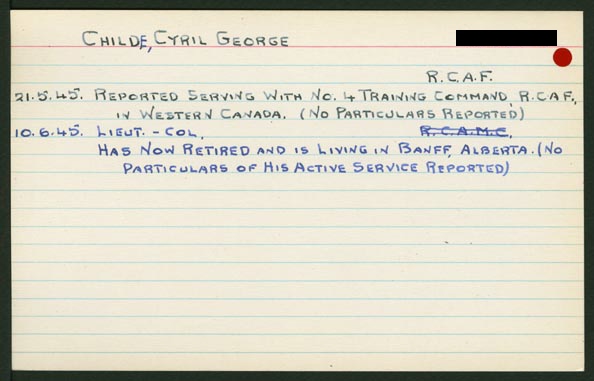 CHILDE, CYRIL GEORGE
R.C.A.F.
21.5.45. REPORTED SERVING WITH NO. 4 TRAINING COMMAND, R.C.A.F.,
IN WESTERN CANADA. (NO PARTICULARS REPORTED)
10.6.45. LIEUT. - COL. R.C.A.M.C.
HAS NOW RETIRED AND IS LIVING IN BANFF, ALBERTA. (NO
PARTICULARS OF HIS ACTIVE SERVICE REPORTED)